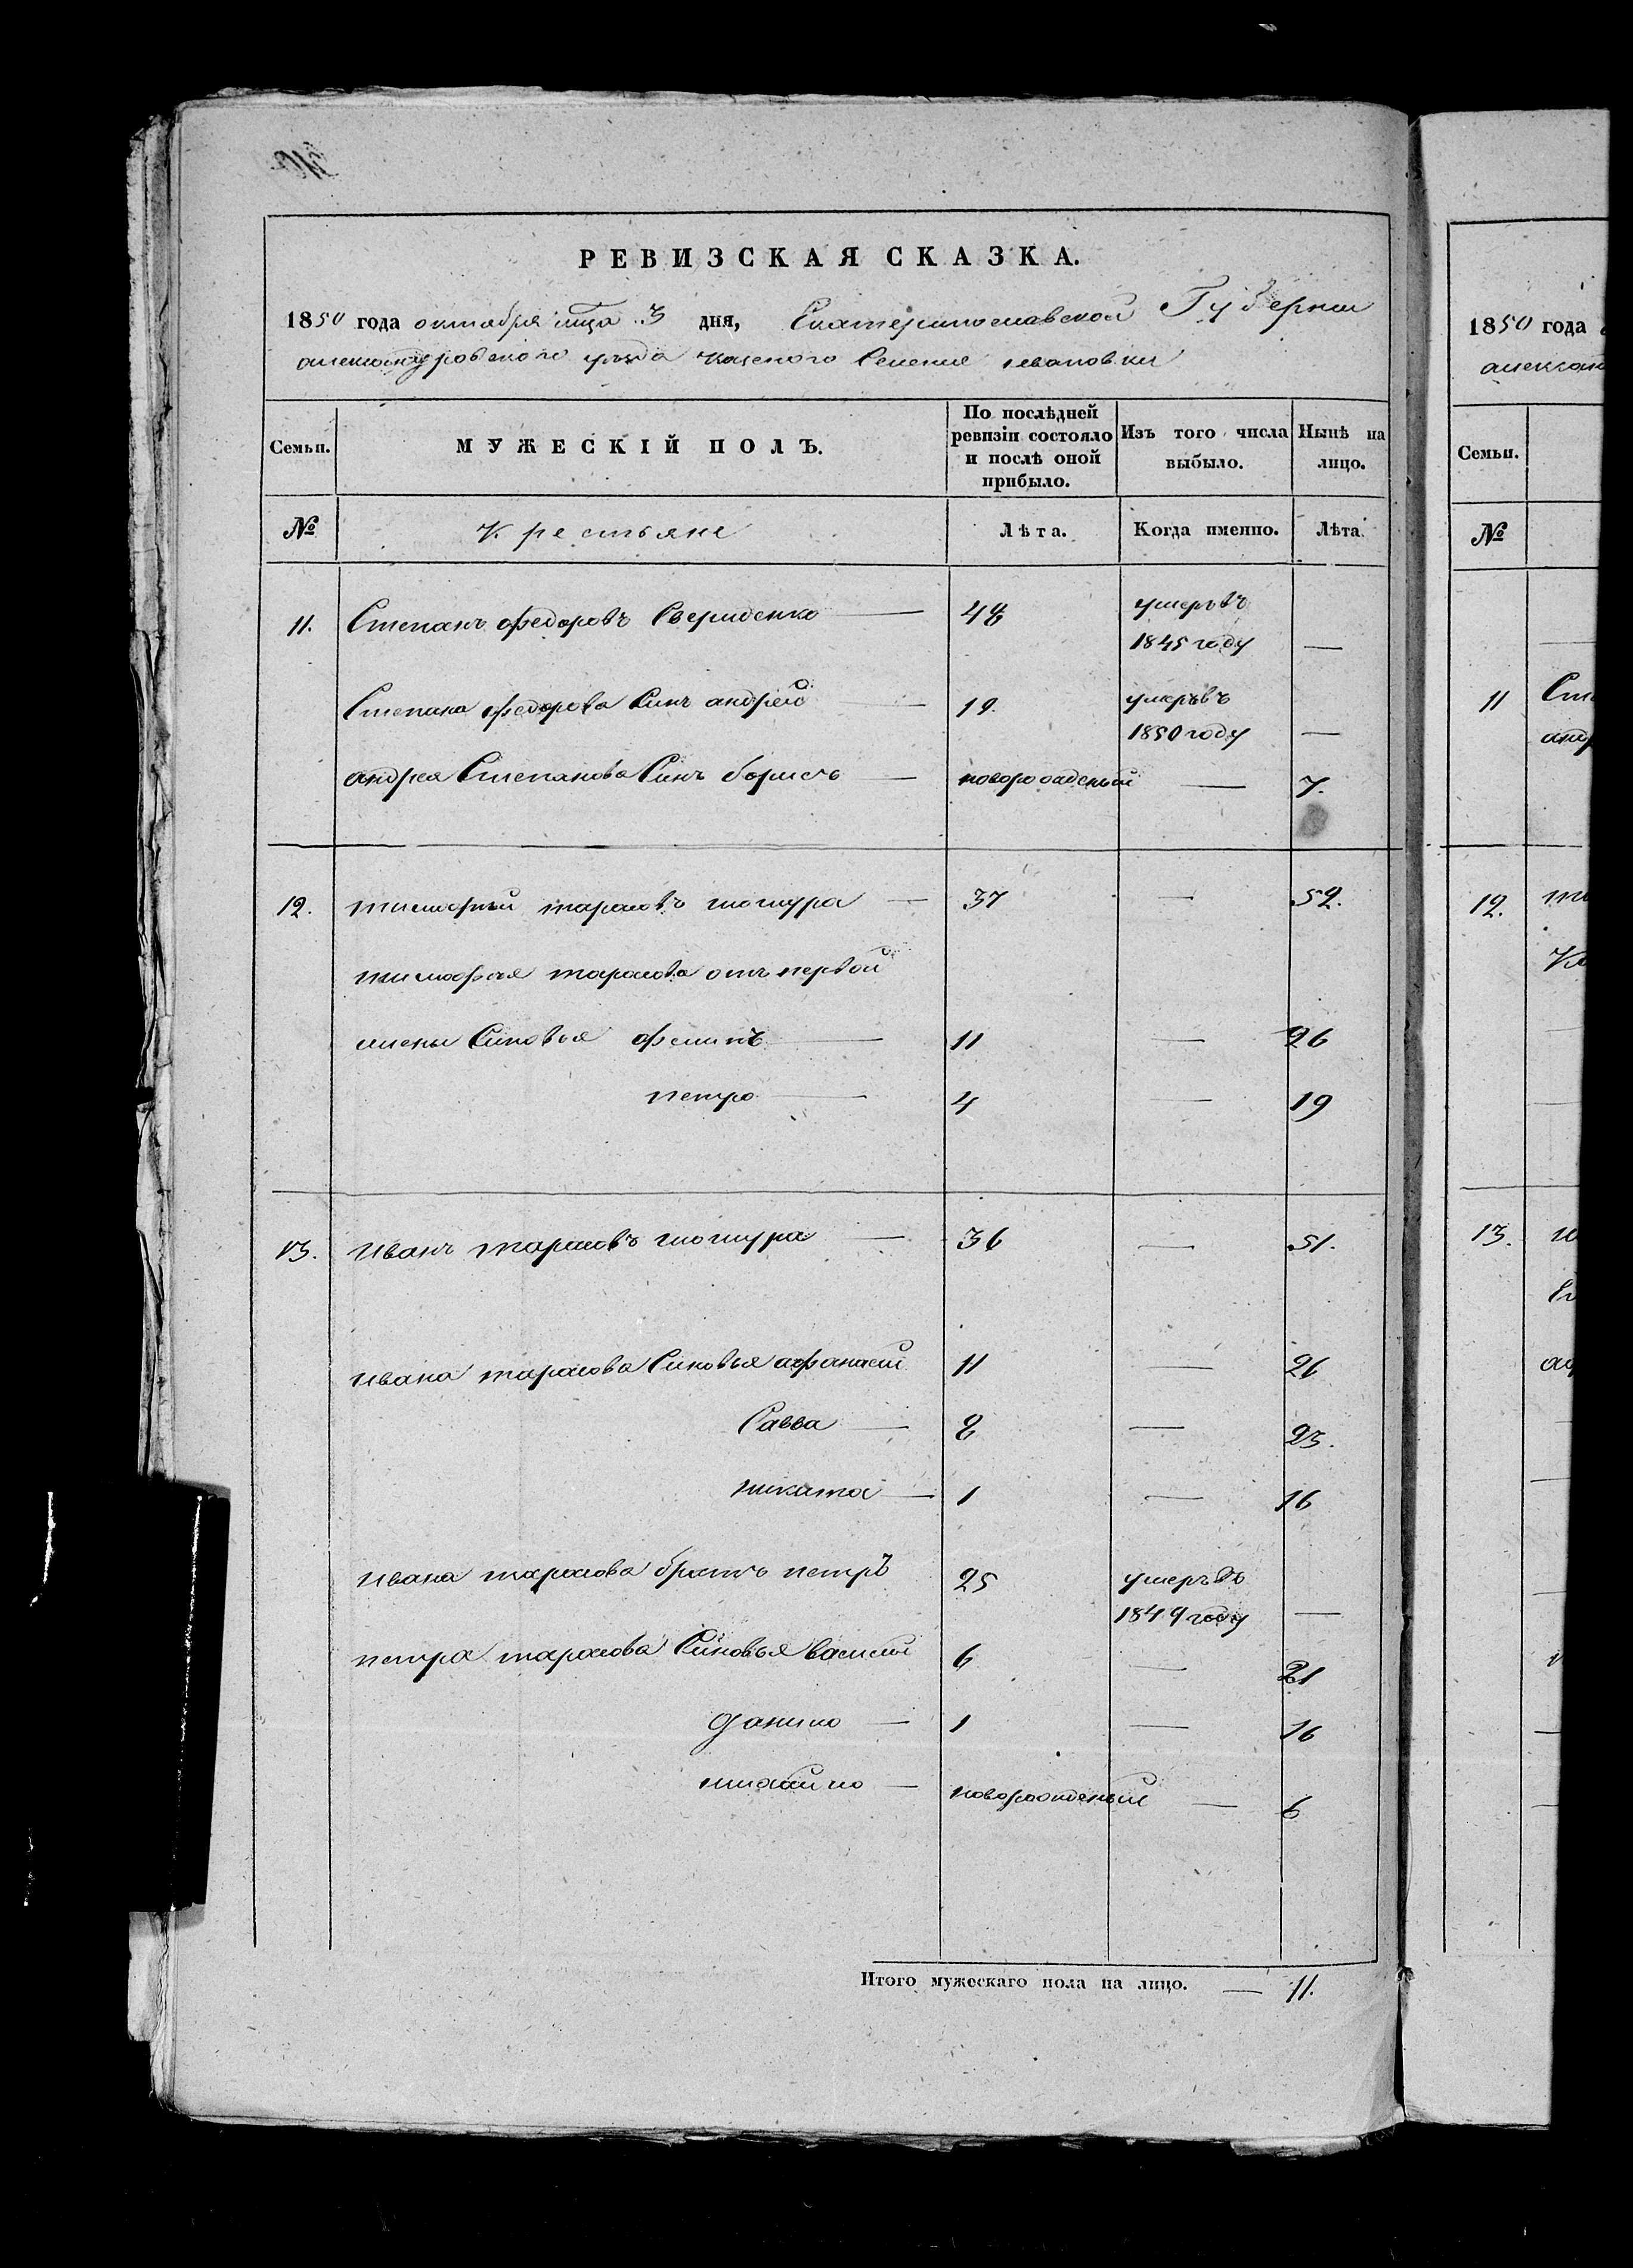 РЕВИЗСКАЯ СКАЗКА.
1850 года октября мца 3 дня, Екатеринославской Губернии
александровского уѣзда казеного Селения ивановки
Семьи.
МУЖЕСКІЙ ПОЛЪ.
По послѣдней ревизіи состояло и послѣ оной прибыло.
Изъ того числа выбыло.
Нынѣ на лицо.
№
Крестьяне
Лѣта.
Когда именно.
Лѣта.
11. Степанъ федоровъ Свериденко — 48 умеръ въ
1845 году —
Степана федорова Синъ андрей — 19. умеръ въ
1850 году —
андрея Степанова Синъ борисъ — новорожденый — 7.
12. тимофей тарасовъ — 37 — 52.
тимофея тарасова отъ первой
жены Синовья филипъ — 11 — 26
петро — 4 — 19
13. иванъ тарасовъ — 36 — 51.
ивана тарасова Синовья афанасий 11 — 26
Савва — 8 — 23.
никита — 1 — 16
ивана тарасова братъ петръ 25 умеръ въ
1849 году —
петра тарасова Синовья василий 6 — 21
данило — 1 — 16
михайло — новорожденый — 6
Итого мужескаго пола на лицо. — 11.
1850 года
Семьи.
№
11
12.
13.